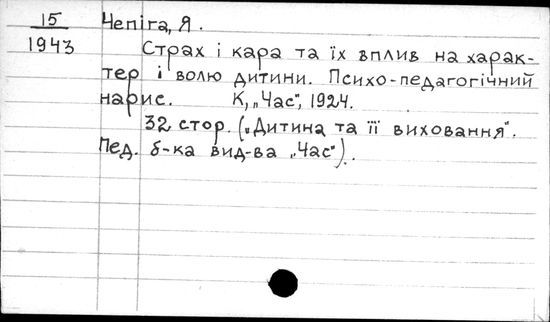 15
1943
Чепіга, Я.
Страх і кара та їх вплив на харак-
тер і волю дитини. Психо-педагогічний
нарис. К, „Час", 1924.
32 стор. („Дитина та її виховання".
Пед. б-ка вид-ва „Час").